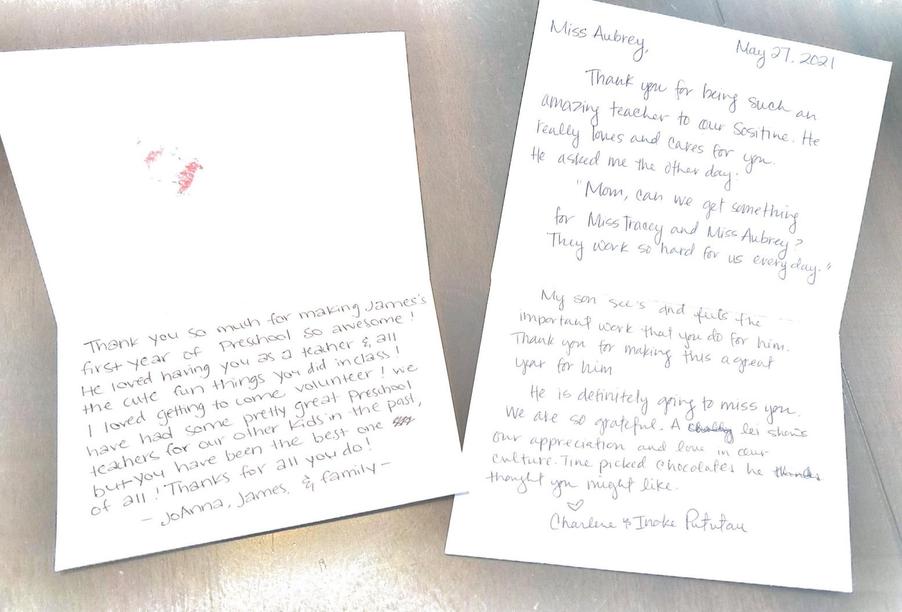 Thank you so much for making James's
first year of Preschool so awesome!
He loved having you as a teaher & all
the cute fun things you did in class!
I loved getting to come volunteer! we
have had some pretty great Preschool
teachers for our other kids in the past,
but you have been the best one
of all! Thanks for all you do!
- JoAnna, James, & family -
Miss Aubrey,
May 27, 2021
Thank you for being such an
amazing teacher to our Sositine. He
really loves and cares for you.
He asked me the other day.
"Mom, can we get something
for Miss Tracey and Miss Aubrey?
They work so hard for us everyday."
My son see's and feels the
important work that you do for him.
Thank you for making this a great
year for him
He is definitely going to miss you.
We are so grateful. A lei shows
our appreciation and love in our
culture. Tine picked chocolates he
thought you might like.
Charlene & Inoke